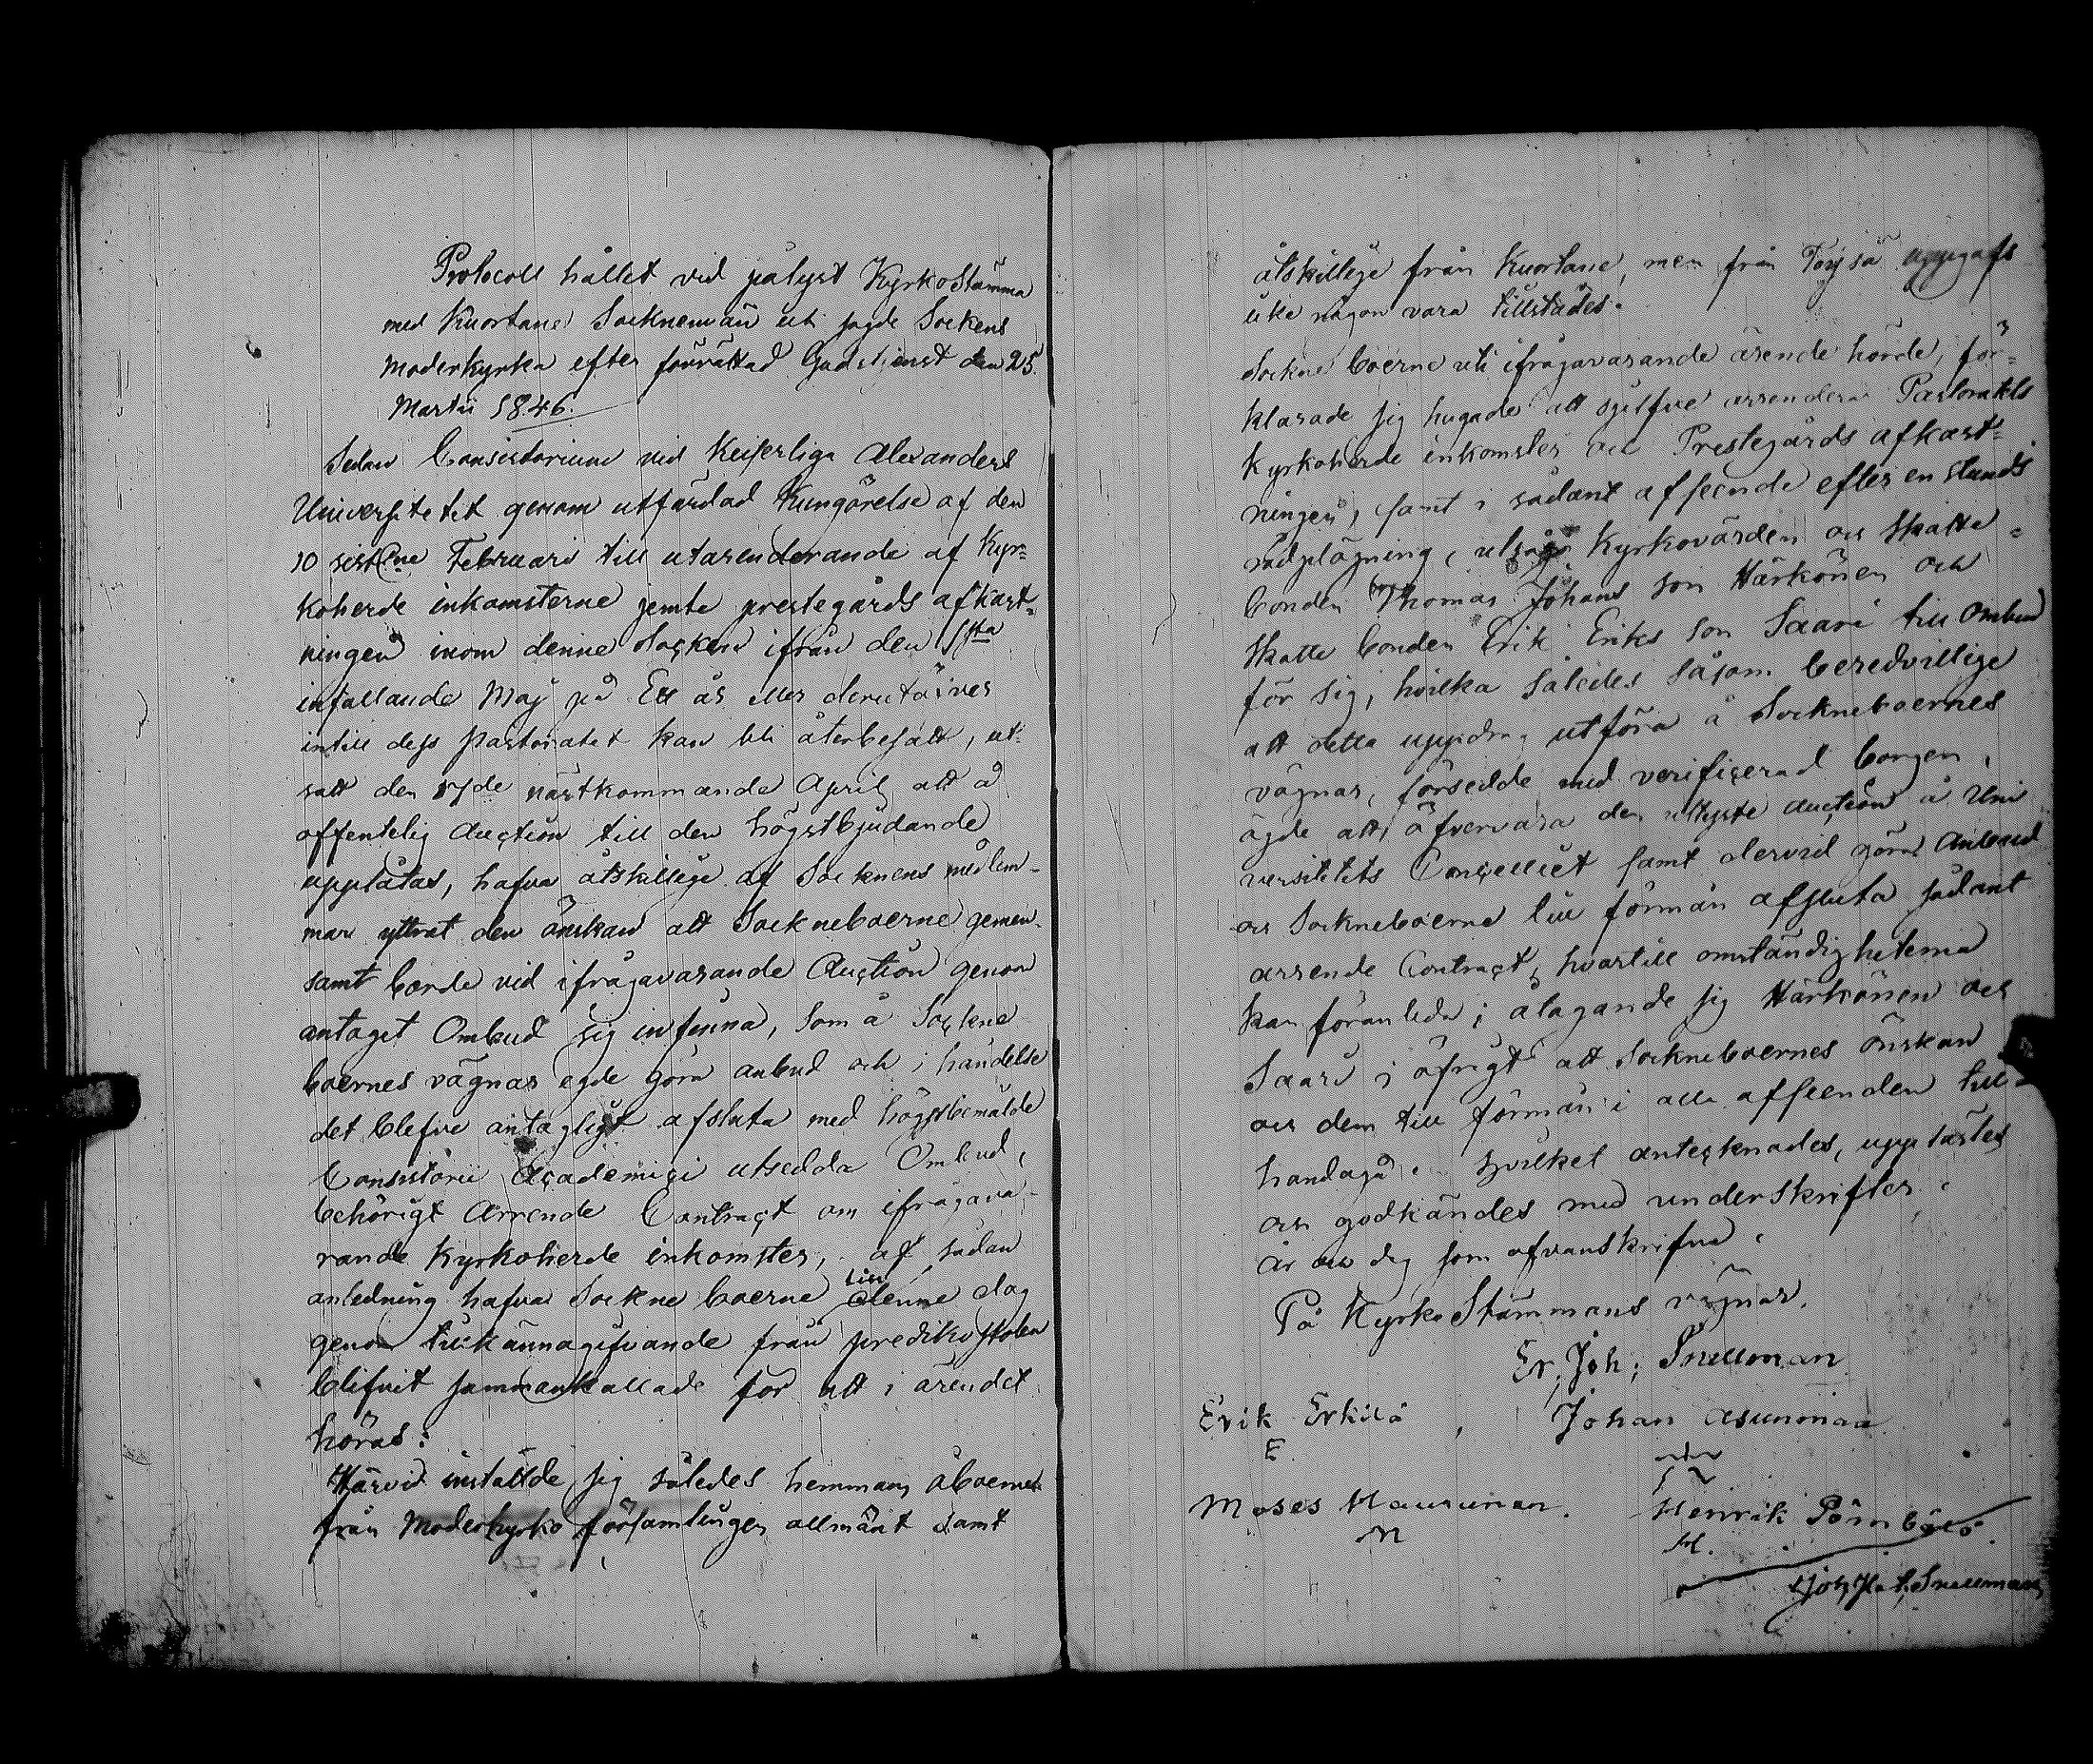 Protocoll hållet vid pålyst KyrkoStämma
med Kuortane Socknemän uti sagde Sockens
Moderkyrka efter förrättad Gudstjenst den 25.
Martii 1846.
Sedan Consistorium vid Kejserliga Alexanders
Universitetet genom utfärdad Kungörelse af den
10 sistl:ne Februari till utarenderande af Kyr=
koherde inkomsterne jemte prestegårds afkast=
ningen inom denne Socken ifrån den 1sta
infallande Maj på Ett år eller derutöfver
intill dess pastoratet kan bli återbesatt, ut-
satt den 17de nästkommande April att å
offentelig Auction till den högstbjudande
upplåtas, hafva åtskillige af Socknens medlem-
mar yttrat den önskan att Sockneboerne gemen-
samt borde vid ifrågavarande Auction genom
antaget Ombud sig infinna, som å Sockne
boernes vägnar egde göra anbud och i händelse
det blefve antagligt afsluta med högstbemälde
Consistorii Academici utsedda Ombud,
behörigt Arrende Contract om ifrågava-
rande Kyrkoherde inkomster; af sådan
anledning hafva Sockneboerne till denne dag
genom tillkännagifvande från predikostolen
blifvit sammankallade för att i ärendet
höras:
Härvid inställde sig således hemmans åboerne
från Moderkyrko församlingen allmänt samt
åtskillige från Kuortane, men från Töysä uppgafs
icke någon vara tillstädes.
Sockneboerne uti ifrågavarande ärende hörde, för=
klarade sig hugade att sjelfve arrendera Pastoratets
Kyrkoherde inkomster och Prestegårds afkast=
ningen, samt i sådant afseende efter en stunds
rådplägning, utsågo Kyrkovärden och Skatte=
bonden Thomas Johans son Härkönen och
Skatte bonden Erik Eriks son Saari till Ombud
för sig, hvilka således såsom beredvillige
att detta uppdrag utföra å Sockneboernes
vägnar, försedde med verificerad borgen,
ägde att öfvervara den utlyste auction å Uni
versitetets Cancelliet samt dervid göra Anbud
och Sockneboerne till förmån afsluta sådant
arrende Contract, hvartill omständigheterna
kan föranleda; åtagande sig Härkönen och
Saari i öfrigt att Sockneboernes önskan
och dem till förmån i alla afseenden till
handagå. Hvilket antecknades, upplästes
och godkändes med underskrifter.
År och dag som ofvanskrifvet.
På KyrkoStämmans vägnar.
Er. Joh: Snellman
Erik Erkilä, Johan Asunmaa
E.
Moses Haurunen. Henrik Pörnbäck
M H.
Joh. Snellman